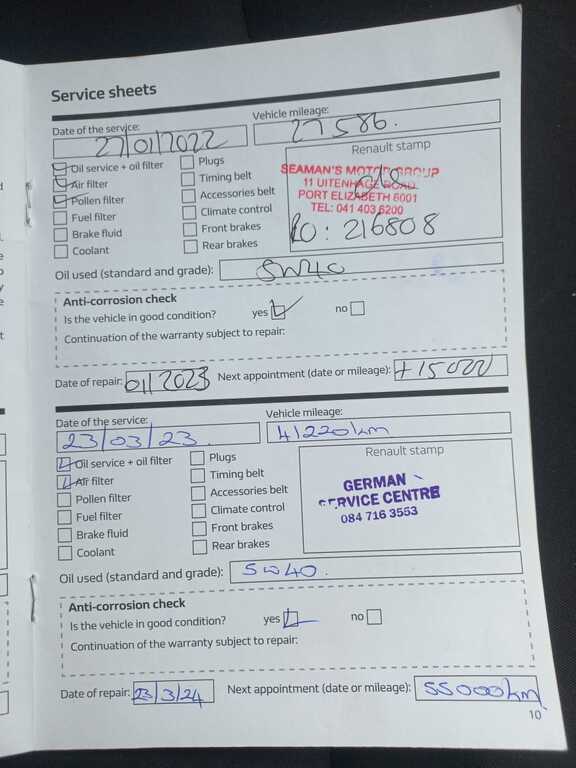 Service sheets
Date of the service: Vehicle mileage:
27/01/2022 27586.
Oil service + oil filter Plugs Renault stamp
Air filter Timing belt
Pollen filter Accessories belt
Fuel filter Climate control
Brake fluid Front brakes
Coolant Rear brakes
SEAMAN'S MOTOR GROUP
11 UITENHAGE ROAD
PORT ELIZABETH 6001
TEL: 041 403 6200
RO: 216808
Oil used (standard and grade): 5W40
Anti-corrosion check
Is the vehicle in good condition? yes no
Continuation of the warranty subject to repair:
Date of repair: 01/2023 Next appointment (date or mileage): +15000
Date of the service: Vehicle mileage:
23/03/23. 41220km
Oil service + oil filter Plugs Renault stamp
Air filter Timing belt
Pollen filter Accessories belt
Fuel filter Climate control
Brake fluid Front brakes
Coolant Rear brakes
GERMAN
SERVICE CENTRE
084 716 3553
Oil used (standard and grade): 5W40.
Anti-corrosion check
Is the vehicle in good condition? yes no
Continuation of the warranty subject to repair:
Date of repair: 23/3/24 Next appointment (date or mileage): 55000km
10